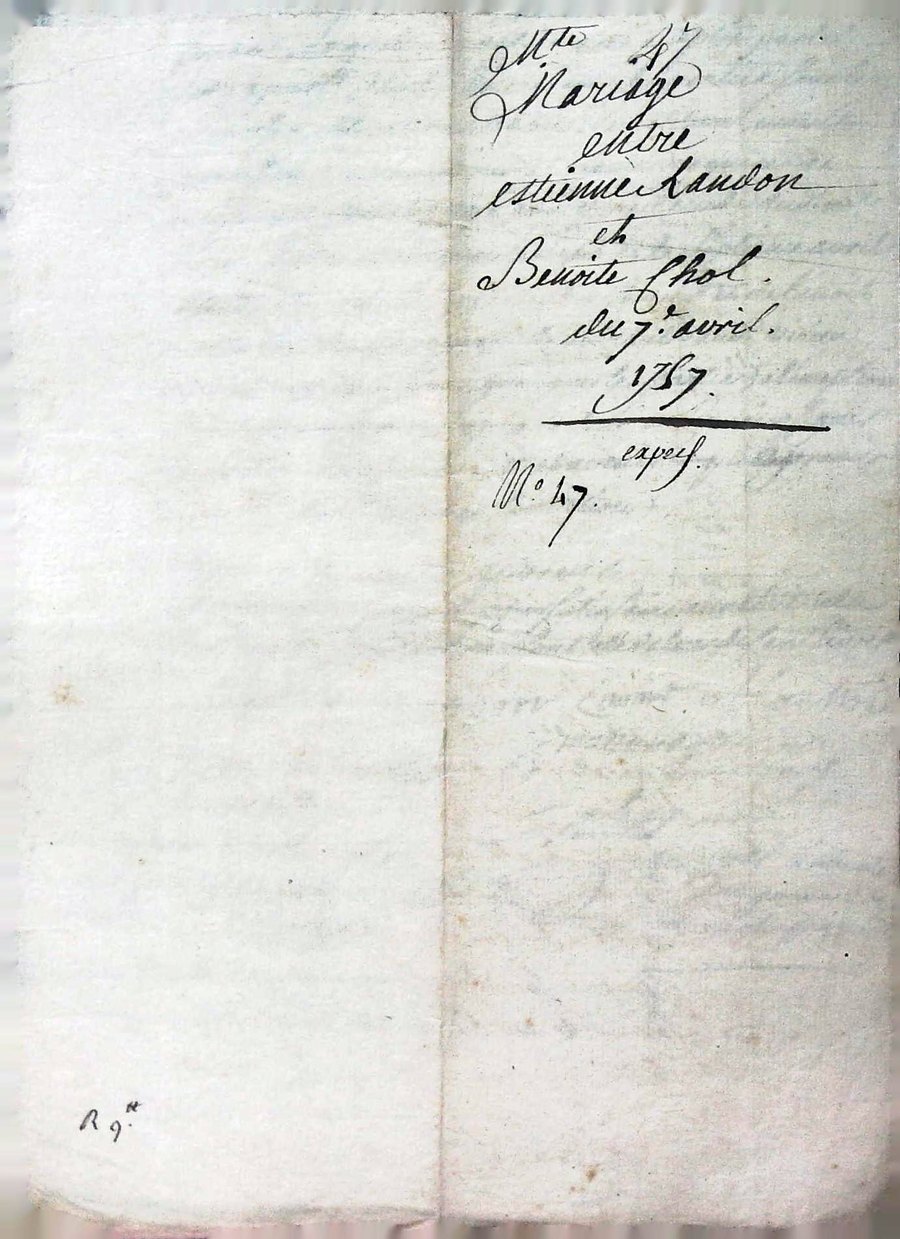 Mte 47
Mariage
entre
estienne Randon
et
Benoite Chol.
du 7e. avril.
1757.
exped.
No 47.
R 9.tt